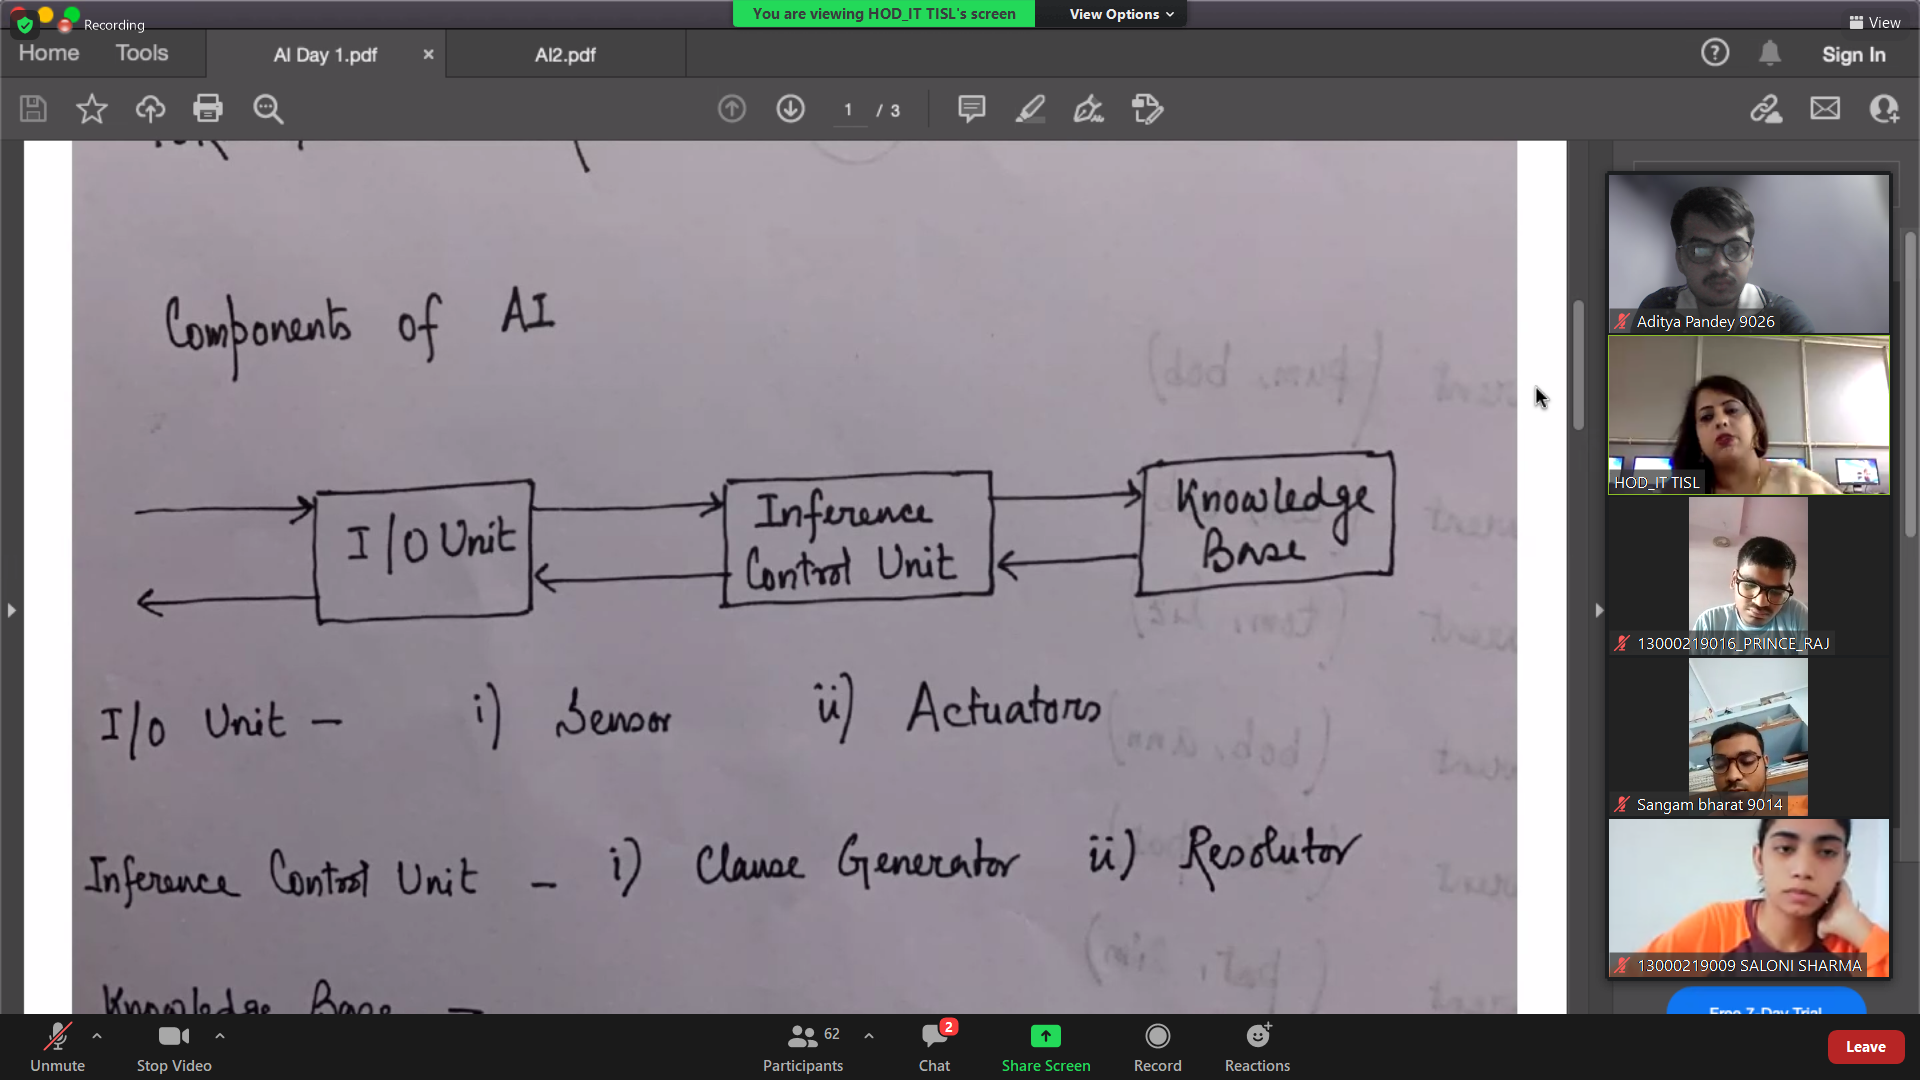 Recording
You are viewing HOD_IT TISL's screen
View Options
View
Home
Tools
AI Day 1.pdf
AI2.pdf
Sign In
1 / 3
Components of AI
I/O Unit
Inference
Control Unit
Knowledge
Base
I/O Unit - i) Sensor ii) Actuators
Inference Control Unit - i) Clause Generator ii) Resolutor
Knowledge Base -
Aditya Pandey 9026
HOD_IT TISL
13000219016_PRINCE_RAJ
Sangam bharat 9014
13000219009 SALONI SHARMA
Free 7-Day Trial
Unmute
Stop Video
62
Participants
2
Chat
Share Screen
Record
Reactions
Leave